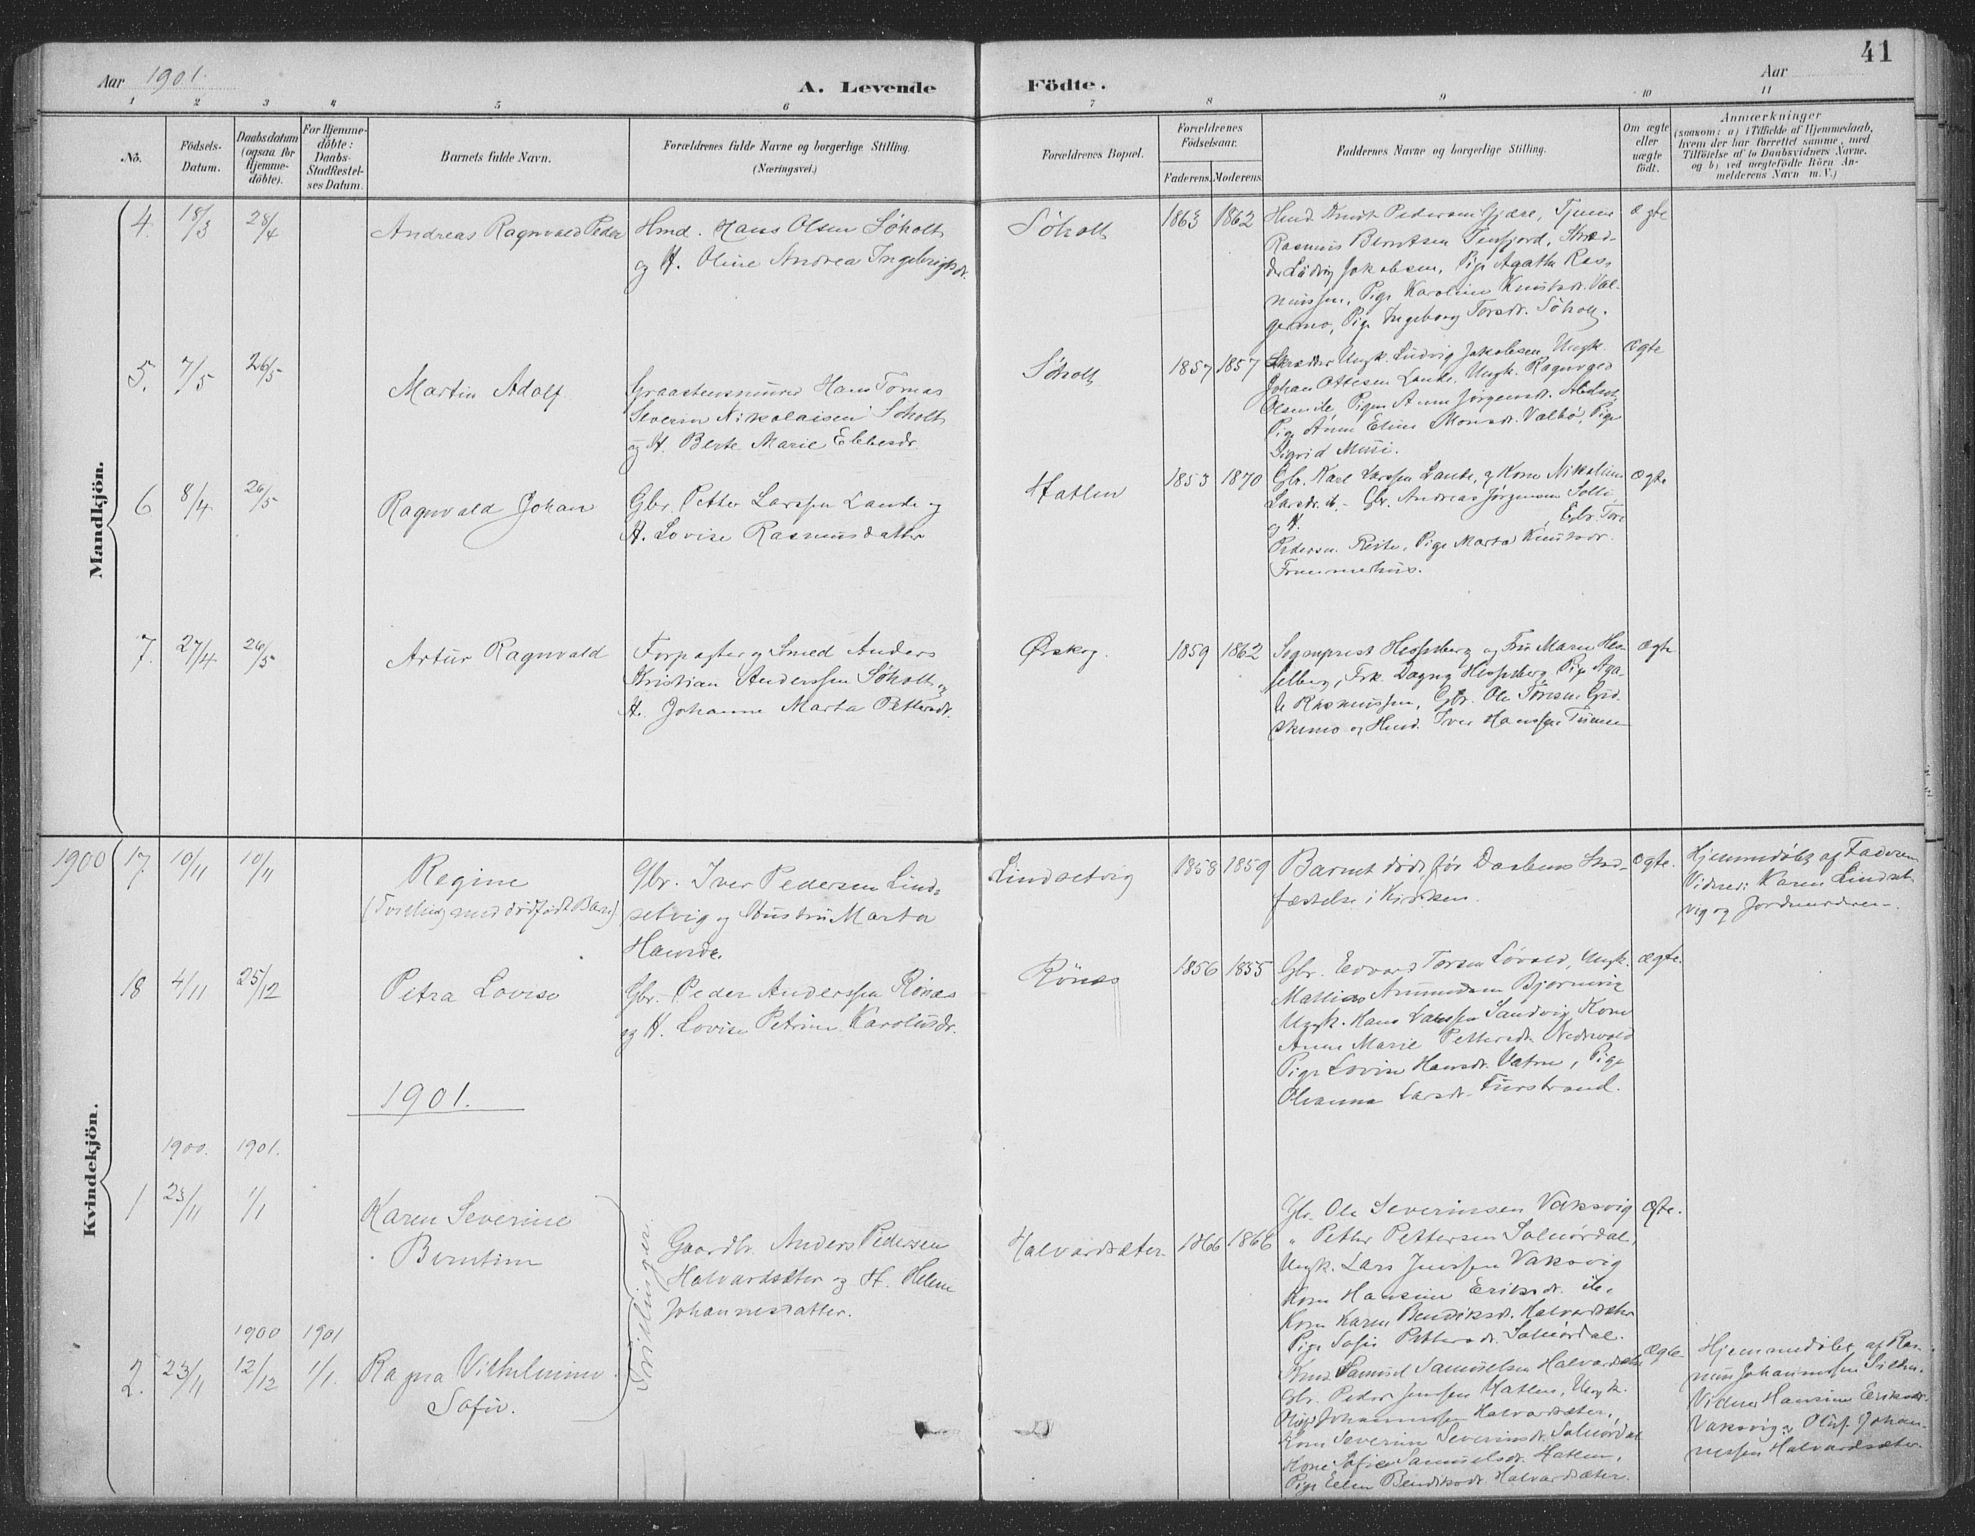 41
Aar 1901.
A. Levende Födte.
Aar
1 2 3 4 5 6 7 8 9 10 11
No.
Födsels-Datum.
Daabsdatum (ogsaa for Hjemme-döbte).
For Hjemme-döbte: Daabs-Stadfæstel-ses Datum.
Barnets fulde Navn.
Forældrenes fulde Navne og borgerlige Stilling.
(Næringsvei.)
Forældrenes Bopæl.
Forældrenes Födselsaar.
Faderens. Moderens.
Faddernes Navne og borgerlige Stilling.
Om ægte eller uægte födt.
Anmærkninger
(saasom: a) i Tilfælde af Hjemmedaab,
hvem der har forrettet samme, med
Tilföielse af to Daabsvidners Navne.
og b) ved uægtefödte Börn An-
melderens Navn m. V.)
Mandkjön.
4. 18/3 28/4
Andreas Ragnvald Peder
Hmd. Hans Olsen Søholt
og H. Oline Andrea Ingebrigtsdr.
Søholt
1863 1862
Hmd. Knut Pedersen Gjære, Tjener
Rasmus Berntsen Tenfjord, Skræd-
der Ludvig Jakobsen, Pige Agathe Ras-
mussen, Pige Karoline Knutsdr. Val-
germo, Pige Ingeborg Torsdr. Søholt.
ægte
5. 7/5 26/5
Martin Adolf
Graastensmurer Hans Tomas
Severin Nikolaisen Søholt
og H. Berte Marie Ebbesdr.
Søholt
1857 1857
Skrædder Ungk. Ludvig Jakobsen, Ungk.
Johan Ottesen Lande, Ungk. Ragnvald
Olsen ile, Pigen Anna Jørgensdr.
Pige Anne Eline Monsdr. Valbø, Pige
Sigrid Musi.
ægte
6 8/4 26/5
Ragnvald Johan
Gbr. Petter Larssen Lande og
H. Lovise Rasmusdatter
Hatlen
1853 1870
Gbr. Karl Larssen Lande, og Kone Nikoline
Larsdr. d. - Gbr. Andreas Jørgensen
og H. Gbr. Tore
Pedersen Reite, Pige Marta Knutsdr.
Frammerhus.
ægte
7. 27/4 26/5
Artur Ragnvald
Forpagter og Smed Anders
Kristian Anderssen Søholt og
H. Johanne Marta Pettersdr.
Ørskog.
1859 1862
Sogneprest Hesselberg og Fru Maren Hes-
selberg, Frk. Dagny Hesselberg, Pige Aga-
te Rasmussen, Gbr. Ole Toresen Gud-
skemo og Hmd. Iver Hanssen
ægte
Kvindekjön.
1900
17. 10/11 10/11
Regine
(Tvilling med dødfødt Barn)
Gbr. Iver Pedersen Lind-
setvig og Hustru Marta
Hansdr.
Lindsetvig
1858 1859
Barnet døde før Daabens Stad-
fæstelse i Kirken.
ægte.
Hjemmedøbt af Faderen
Vidner: Karen Lindset-
vig og Jordmoderen.
18 4/11 25/12
Petra Lovise
Gbr. Peder Anderssen Rønes
og H. Lovise Petrine Karolusdr.
Rønes
1856 1855
Gbr. Edvard Torsen Løvold, Ungk.
Mathias Amundsen Bjørnevig
Ungk. Hans Larssen Sandvig, Kone
Anne Marie Pettersdr. Nedrevold
Pige Lovise Hansdr. Vatne, Pige
Olianna Larsdr. Furstrand.
ægte.
1901.
1900. 1901.
1 23/11 1/1
Karen Severine
Berntine
Tvillinger.
Gaardbr. Anders Pedersen
Halvardsæter og H. Helene
Johannesdatter.
Halvardsæter
1866 1866
Gbr. Ole Severinsen Vaksvig
„ Petter Pettersen Solnørdal,
Ungk. Lars Jenssen Vaksvig
Kone Hansine Eriksdr. ile,
Kone Karen Bendiksdr. Halvardsæter
Pige Sofie Pettersdr. Solnørdal.
ægte.
1900 1901
2. 23/11 12/12 1/1.
Ragna Vilhelmine
Sofie.
Hmd Samuel Samuelsen Halvardsæter
Gbr. Peder Jenssen Hatlen, Ungk.
Oluf Johannessen Halvardsæter,
Kone Severine Severinsdr. Solnørdal
Kone Sofie Samuelsdr. Hatlen,
Pige Elen Bendiksdr. Halvardsæter.
ægte
Hjemmedøbt af Ras-
mus Johannessen
Vidner Hansine Eriksdr.
Vaksvig og Oluf Johan-
nessen Halvardsæter